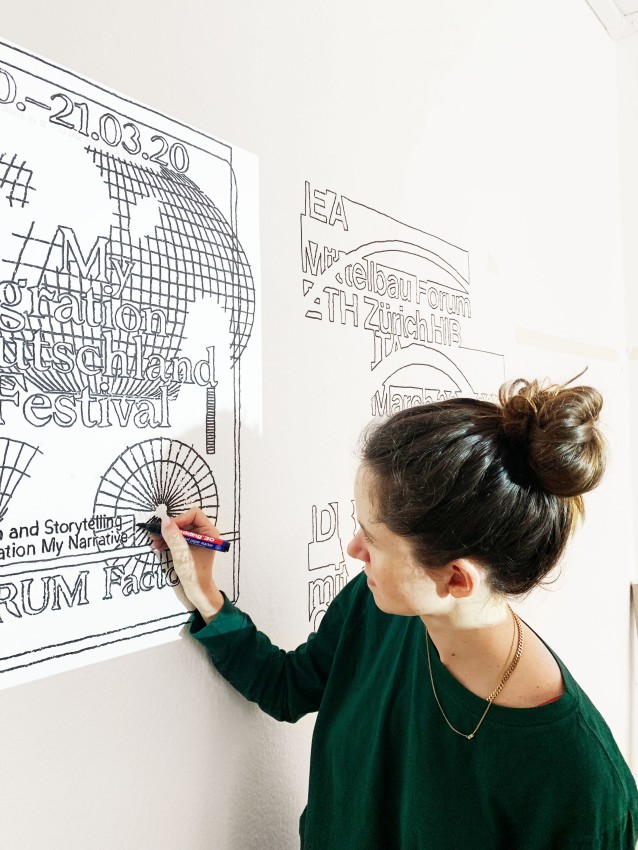 0.–21.03.20
My
gration
utschland
Festival
n and Storytelling
ation My Narrative
RUM Facto
IEA
Mittelbau Forum
ETH Zürich HIB
March
edding